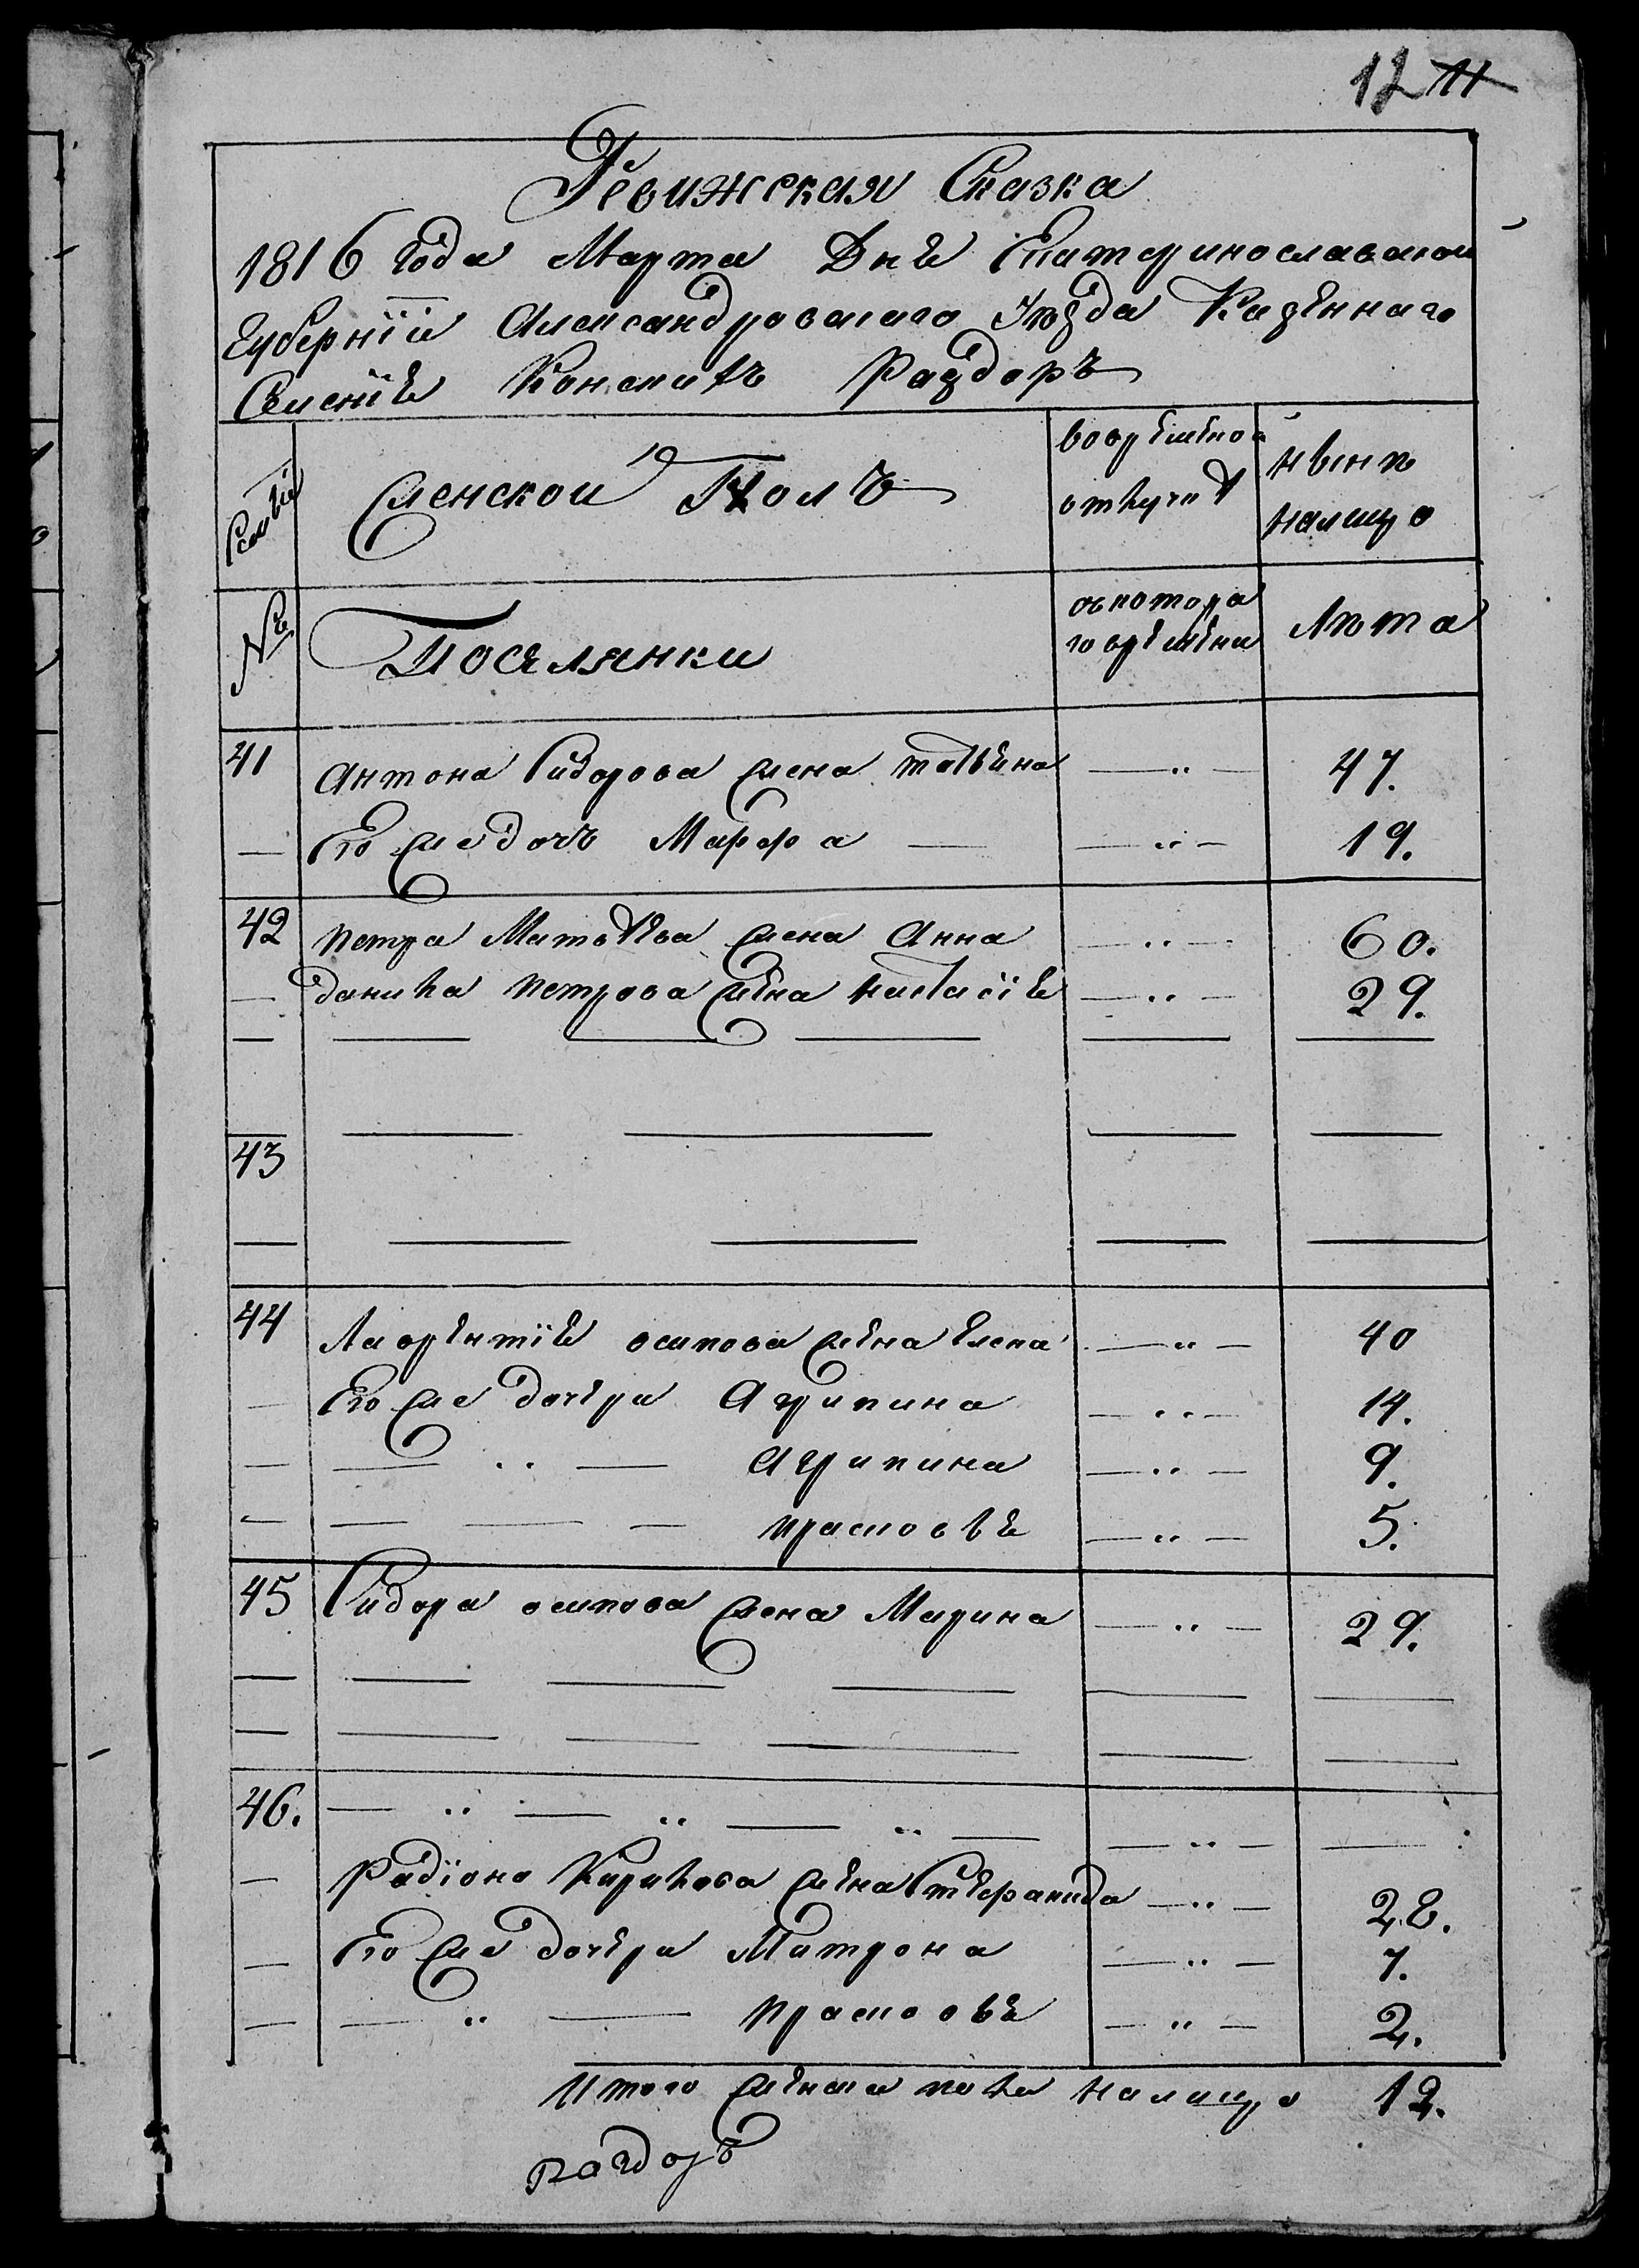 12 11
Ревижская Сказка
1816 Года Марта Дне Екатеринославской
Губернїи Александровскаго Уезда Казенного
Селенїе Конскихъ Раздоръ
Семьи
Женской Полъ
вовременной отлучке
ныне налицо
№
Поселянки
съ котораго времени
Лета
41 Антона Сидорова жена Татьяна — " — 47.
— Его же дочь Марфа — — " — 19.
42 петра Матвеева жена Анна — " — 60.
— данила петрова жена настасїе — " — 29.
43
44 Лаврентїе осипова жена Елена — " — 40
— Его же дочери Агрипина — " — 14.
— — " — Агрипина — " — 9.
— — — — прасковье — " — 5.
45 Сидора осипова жена Марина — " — 29.
46. — " — " — " — — " —
— Радїона Кирилова жена Стефанида — " — 28.
— Его же дочери Матрона — " — 7.
— — " — прасковье — " — 2.
Итого женска пола налицо 12.
раздоръ